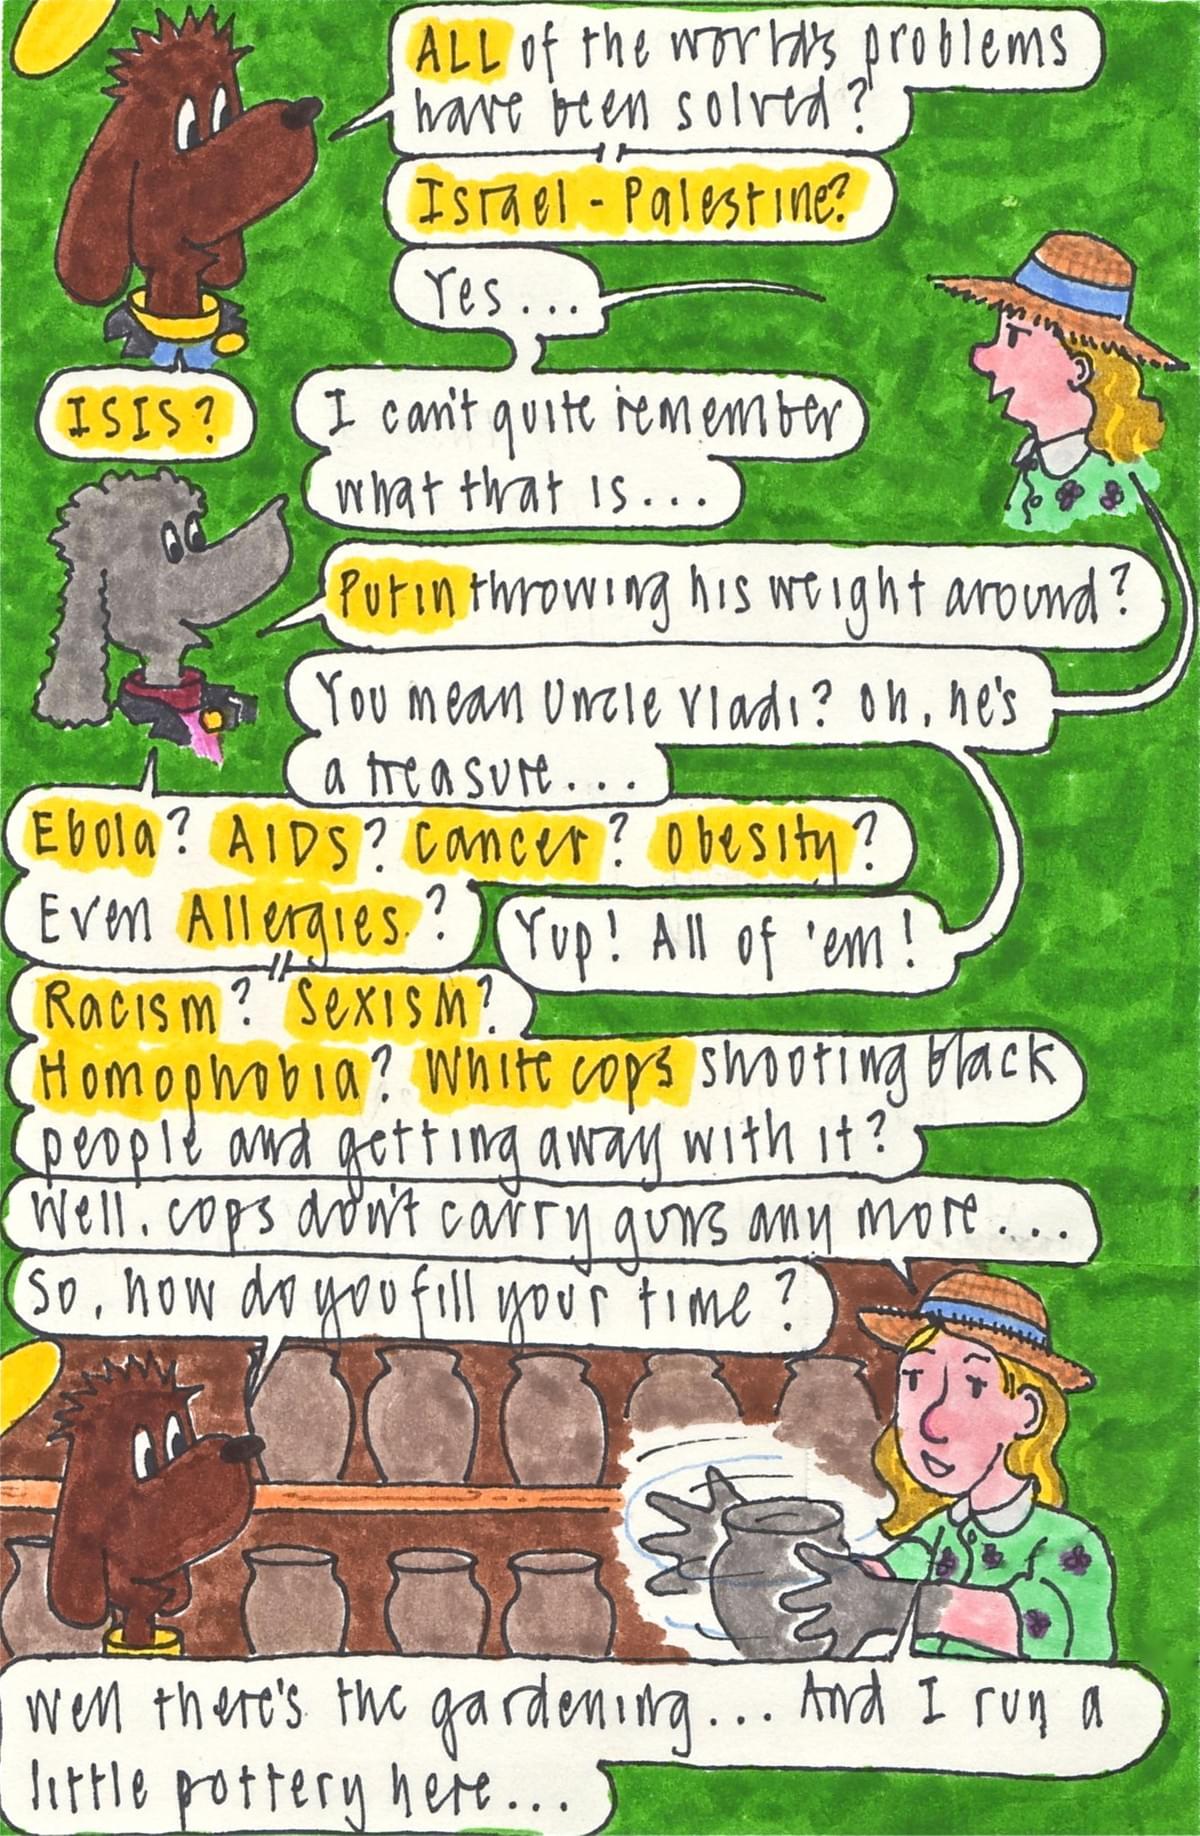 ALL of the world's problems
have been solved?
Israel - Palestine?
Yes...
ISIS?
I can't quite remember
what that is...
Putin throwing his weight around?
You mean Uncle Vladi? Oh, he's
a treasure...
Ebola? AIDS? Cancer? Obesity?
Even Allergies?
Yup! All of 'em!
Racism? Sexism?
Homophobia? White cops shooting black
people and getting away with it?
Well, cops don't carry guns any more....
So, how do you fill your time?
Well there's the gardening... And I run a
little pottery here...